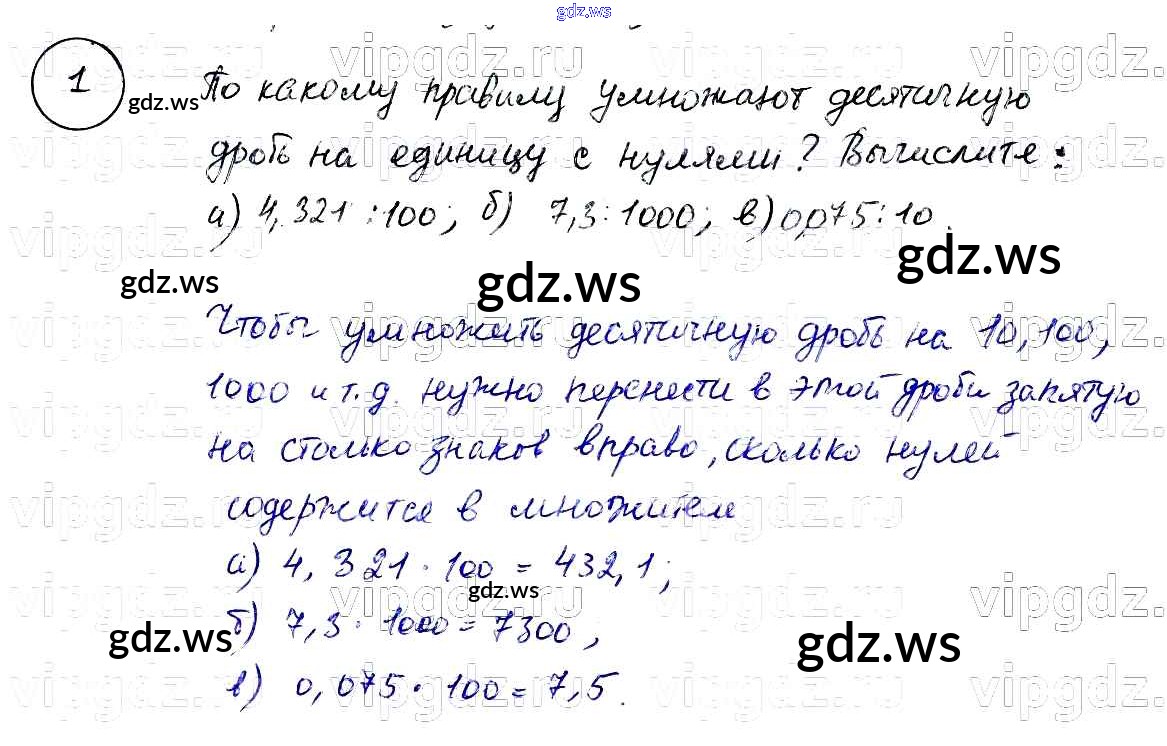 gdz.ws
1 По какому правилу умножают десятичную
gdz.ws
дробь на единицу с нулями? Вычислите:
а) 4,321 : 100; б) 7,3 : 1000; в) 0,075 : 10.
gdz.ws gdz.ws gdz.ws
Чтобы умножить десятичную дробь на 10, 100,
1000 и т.д. нужно перенести в этой дроби запятую
на столько знаков вправо, сколько нулей
содержится в множителе
а) 4,321 · 100 = 432,1;
gdz.ws
б) 7,3 · 1000 = 7300;
gdz.ws gdz.ws
в) 0,075 · 100 = 7,5.
vipgdz.ru vipgdz.ru vipgdz.ru